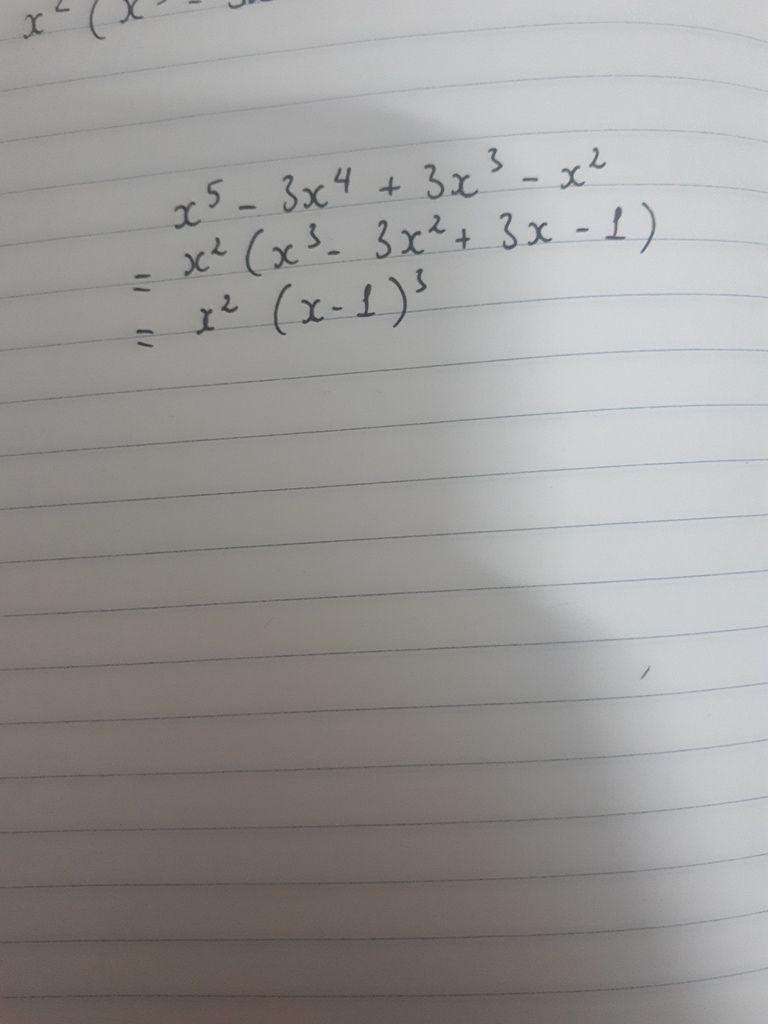 x² (x
x⁵ - 3x⁴ + 3x³ - x²
= x² (x³ - 3x² + 3x - 1)
= x² (x-1)³